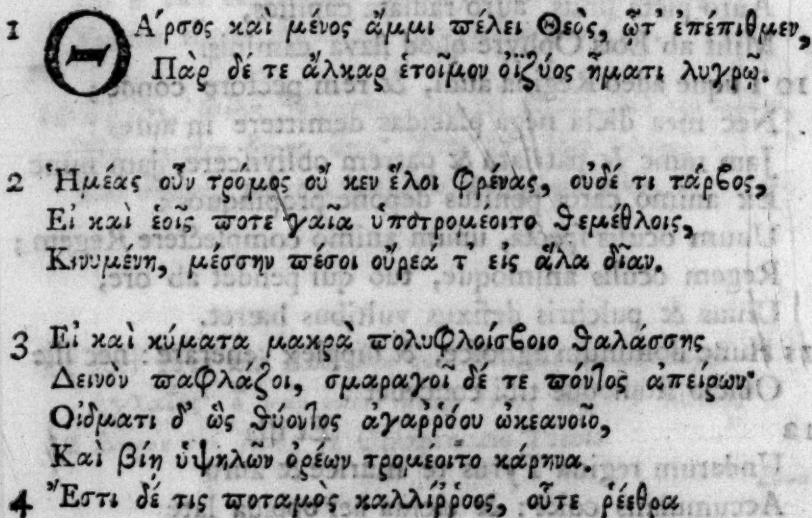 1 ΘΑ´ρσος καὶ μένος ἄμμι πέλει Θεὸς, ᾧτ᾽ ἐπέπιθμεν,
Πὰρ δέ τε ἄλκαρ ἑτοῖμον ὀϊζύος ἤματι λυγρῷ.
2 Ἡμέας οὖν τρόμος οὔ κεν ἕλοι φρένας, οὐδέ τι τάρβος,
Εἰ καὶ ἑοῖς ποτε γαῖα ὑποτρομέοιτο θεμέθλοις,
Κινυμένη, μέσσην πέσοι οὔρεα τ᾽ εἰς ἅλα δῖαν.
3 Εἰ καὶ κύματα μακρὰ πολυφλοίσβοιο θαλάσσης
Δεινὸν παφλάζοι, σμαραγοῖ δέ τε πόντος ἀπείρων·
Οἴδματι δ᾽ ὣς θύοντος ἀγαῤῥόου ὠκεανοῖο,
Καὶ βίη ὑψηλῶν ὀρέων τρομέοιτο κάρηνα.
4 Ἔστι δέ τις ποταμος καλλίῤῥοος, οὗτε ῥέεθρα